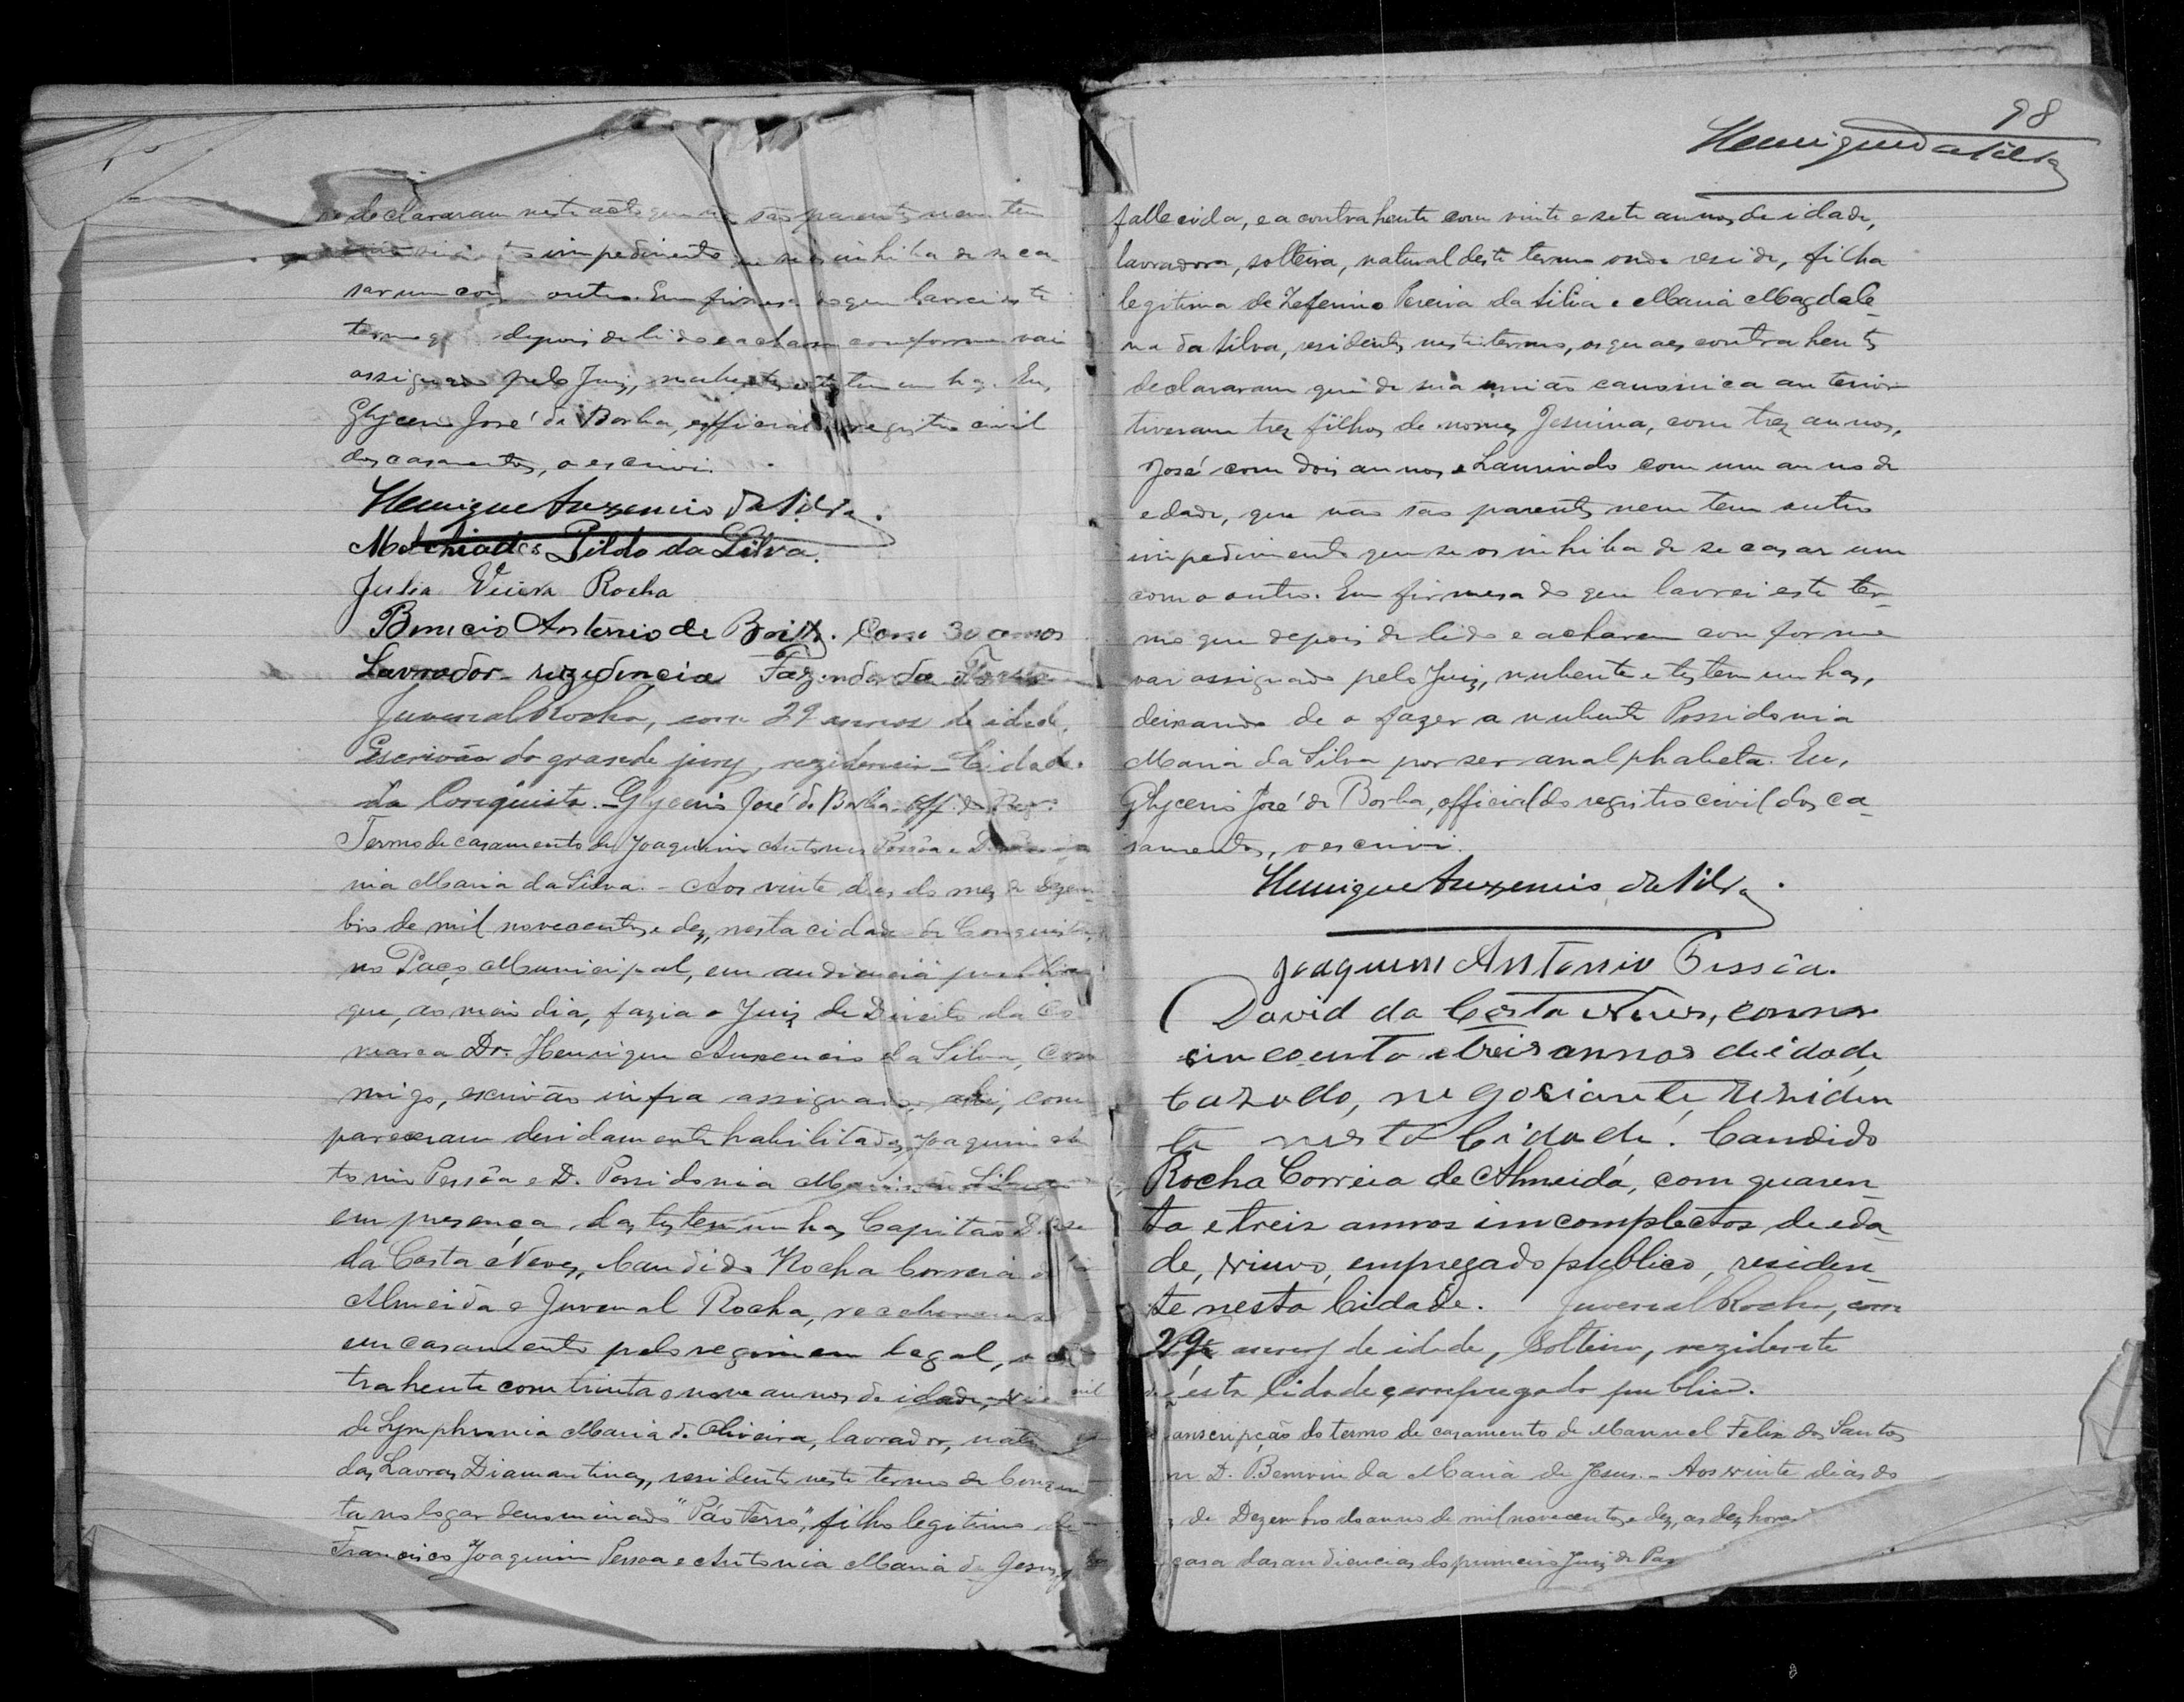 declararam neste acto que não são parentes nem tem
impedimento que se os inhiba de se ca-
sar um com outro. Em firmesa do que lavrei este
termo que depois de lido e acharem conforme vai
assignado pelo Juiz, nubentes e testemunhas. Eu,
Glycerio José da Borba, official do registro civil
dos casamentos, o escrivi.
Henrique Auxencio da Silva.
Melchiades Pildo da Silva.
Julia Vieira Rocha
Benicio Antonio de Brito. Com 30 annos
Lavrador - rezidencia Fazenda da
Juvenal Rocha, com 29 annos de idade,
Escrivão do grande jury, rezidencia - Cidade
da Conquista. - Glycerio José da Borba. off. do Reg.
Termo de casamento de Joaquim Antonio Pessôa e D.
nia Maria da Silva. - Aos vinte dias do mez de Dezem-
bro de mil novecentos e dez, nesta cidade de Conquista,
no Paço Municipal, em audiencia publica
que, ao meio dia, fazia o Juiz de Direito da Co-
marca Dr. Henrique Auxencio da Silva, com-
migo, escrivão infra assignado, ahi, com-
pareceram devidamente habilitados, Joaquim An-
tonio Pessôa e D. Possidonia Maria da Silva
em presença das testemunhas Capitão
da Costa e Neves, Candido Rocha Correia de
Almeida e Juvenal Rocha, receberam se
em casamento pelo regimem legal, o con-
trahente com trinta e nove annos de idade,
de Symphronia Maria de Oliveira, lavrador, natural
das Lavras Diamantinas, residente neste termo de Conquis-
ta no logar denominado "Páo Ferro", filho legitimo de
Francisco Joaquim Pessoa e Antonia Maria de Jesus,
98
Henrique da Silva
fallecida, e a contrahente com vinte e sete annos de idade,
lavradora, solteira, natural deste termo onde reside, filha
legitima de Zeferino Pereira da Silva e Maria Magdale-
na da Silva, residentes neste termo, os quaes contrahentes
declararam que de sua união canonica anterior
tiveram trez filhos de nomes Jesuina, com trez annos,
José com dois annos e Laurindo com um anno de
edade, que não são parentes nem tem outro
impedimento que se os inhiba de se casar um
com o outro. Em firmesa do que lavrei este ter-
mo que depois de lido e acharem conforme
vai assignado pelo Juiz, nubente e testemunhas,
deixando de o fazer a nubente Possidonia
Maria da Silva por ser analphabeta. Eu,
Glycerio José da Borba, official do registro civil dos ca-
samentos, o escrivi.
Henrique Auxencio da Silva.
Joaquim Antonio Pessôa.
David da Costa Neves, comnr
sincoenta e treis annos de idade,
cazado, negosiante, reziden
te nesta Cidade. Candido
Rocha Correia de Almeida, com quaren-
ta e treis annos imcomplectos de eda-
de, viuvo, empregado publico, residen-
te nesta Cidade. Juvenal Rocha, com
29 annos de idade, solteiro, rezidente
nésta Cidade, e empregado publico.
anscripção do termo de casamento de Manuel Felix dos Santos
D. Bemvinda Maria de Jesus. - Aos vinte dias do
de Dezembro do anno de mil novecentos e dez, as dez horas
casa das audiencias do primeiro Juiz de Paz